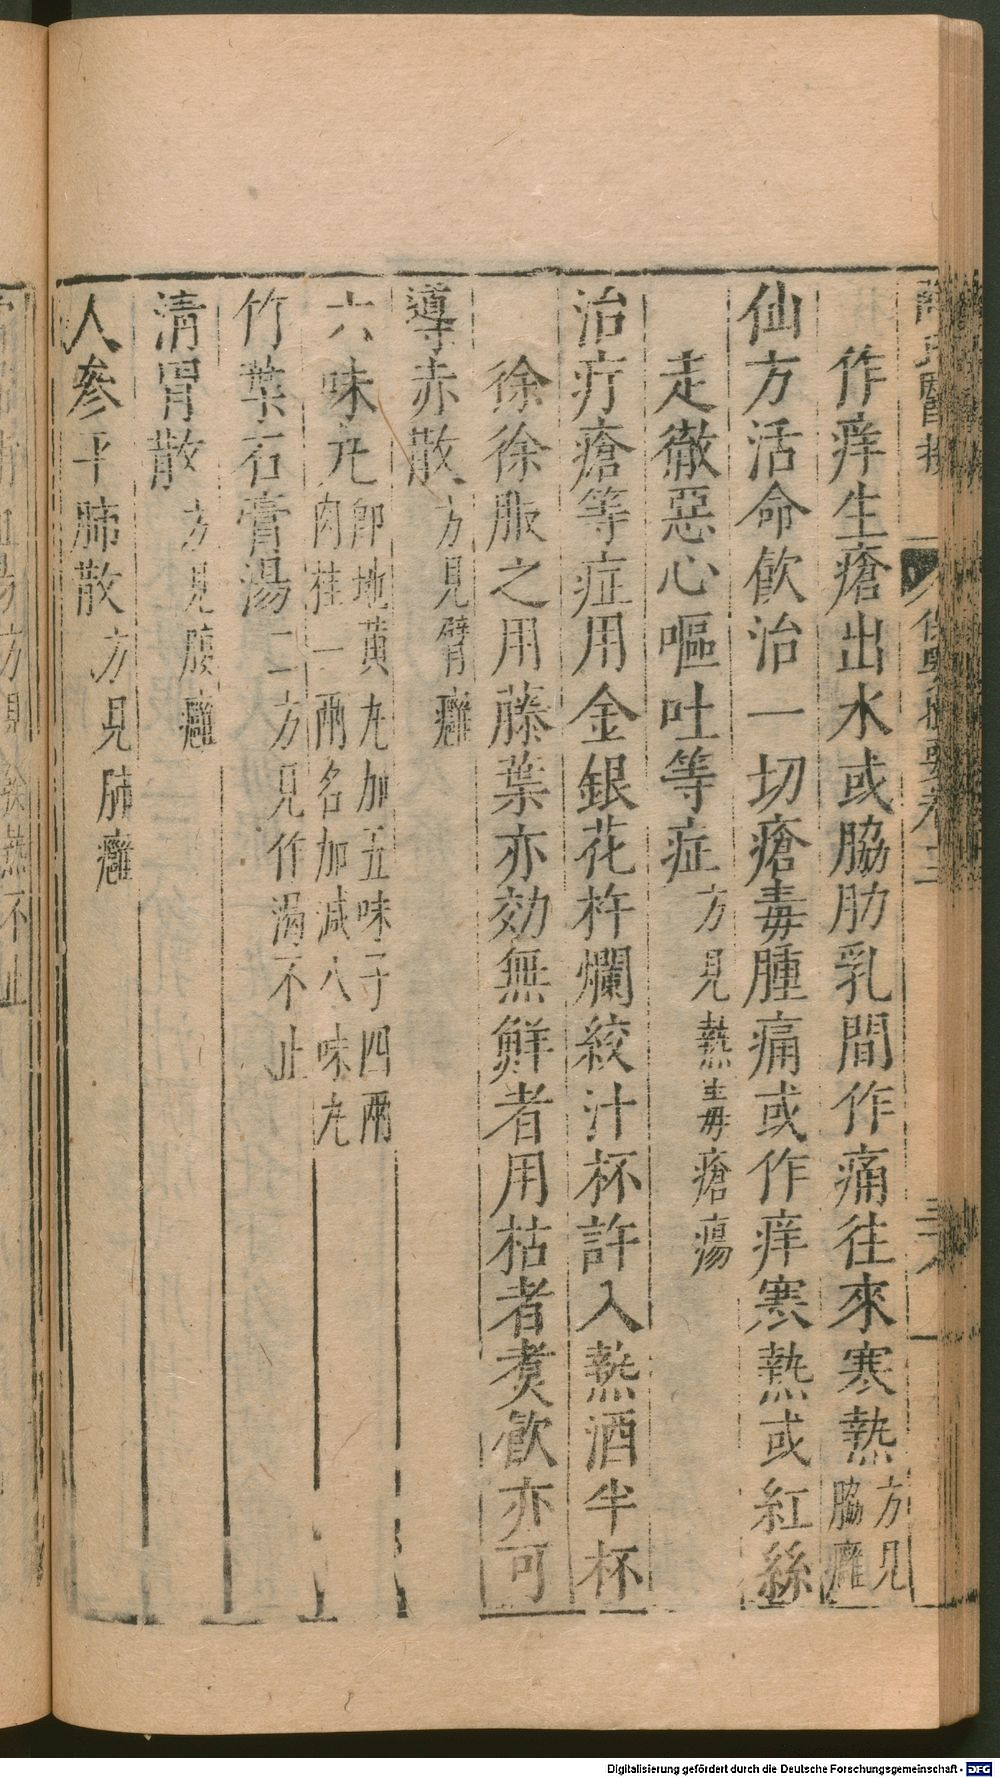 薛氏醫按 保嬰撮要卷十三 三八
作痒生瘡出水或脇肋乳間作痛往來寒熱方見脇癰
仙方活命飲治一切瘡毒腫痛或作痒寒熱或紅絲
走徹惡心嘔吐等症方見熱毒瘡瘍
治疔瘡等症用金銀花杵爛絞汁杯許入熱酒半杯
徐徐服之用藤葉亦効無鮮者用枯者煑飲亦可
導赤散方見臂癰
六味丸即地黃丸加五味子四兩肉桂一兩名加減八味丸
竹葉石膏湯二方見作渴不止
清胃散方見腹癰
人參平肺散方見肺癰
Digitalisierung gefördert durch die Deutsche Forschungsgemeinschaft - DFG